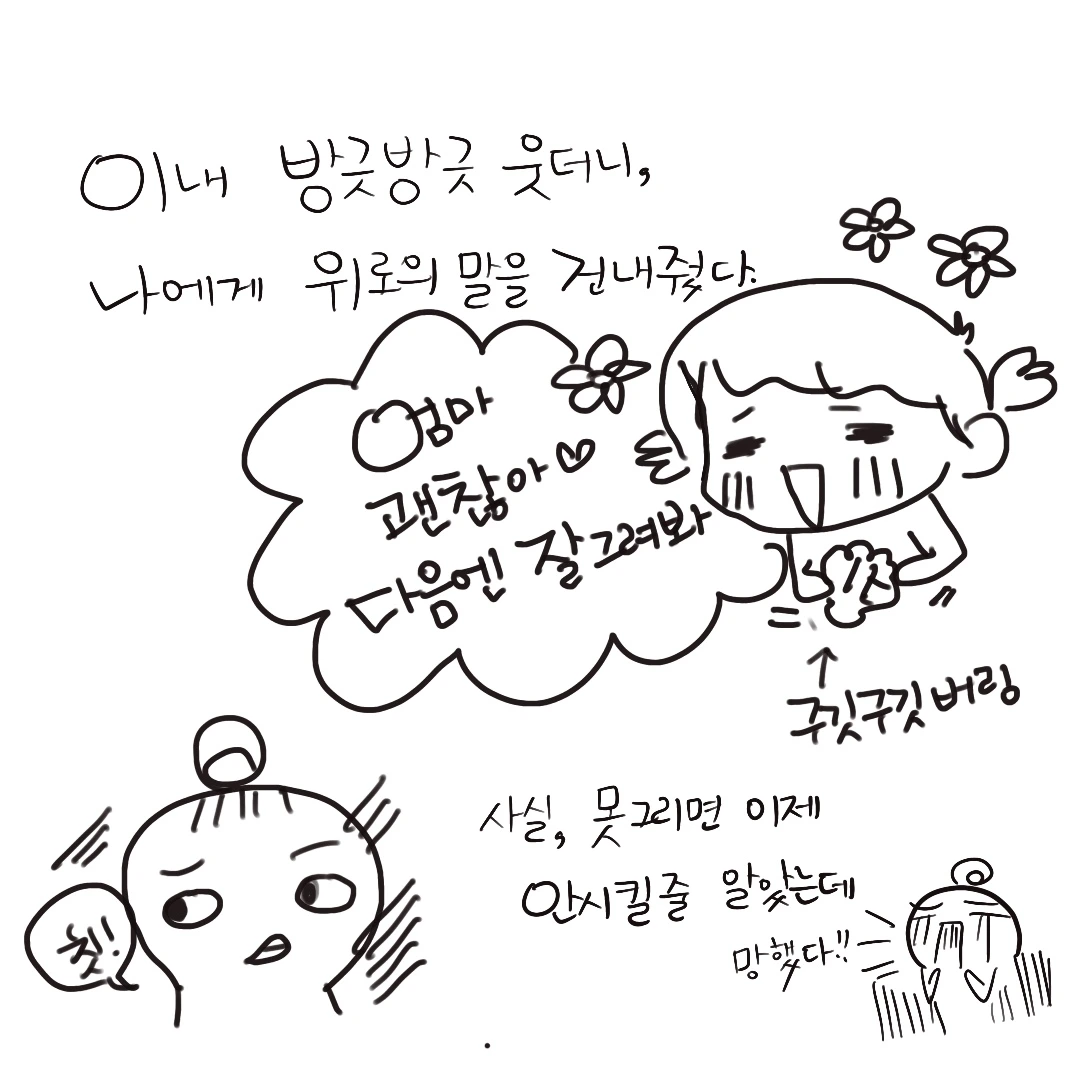 이내 방긋방긋 웃더니,
나에게 위로의 말을 건내줬다.
엄마
괜찮아♡
다음엔 잘그려봐
↑
구깃구깃버링
칫!
사실, 못그리면 이제
안시킬줄 알았는데
망했다!!